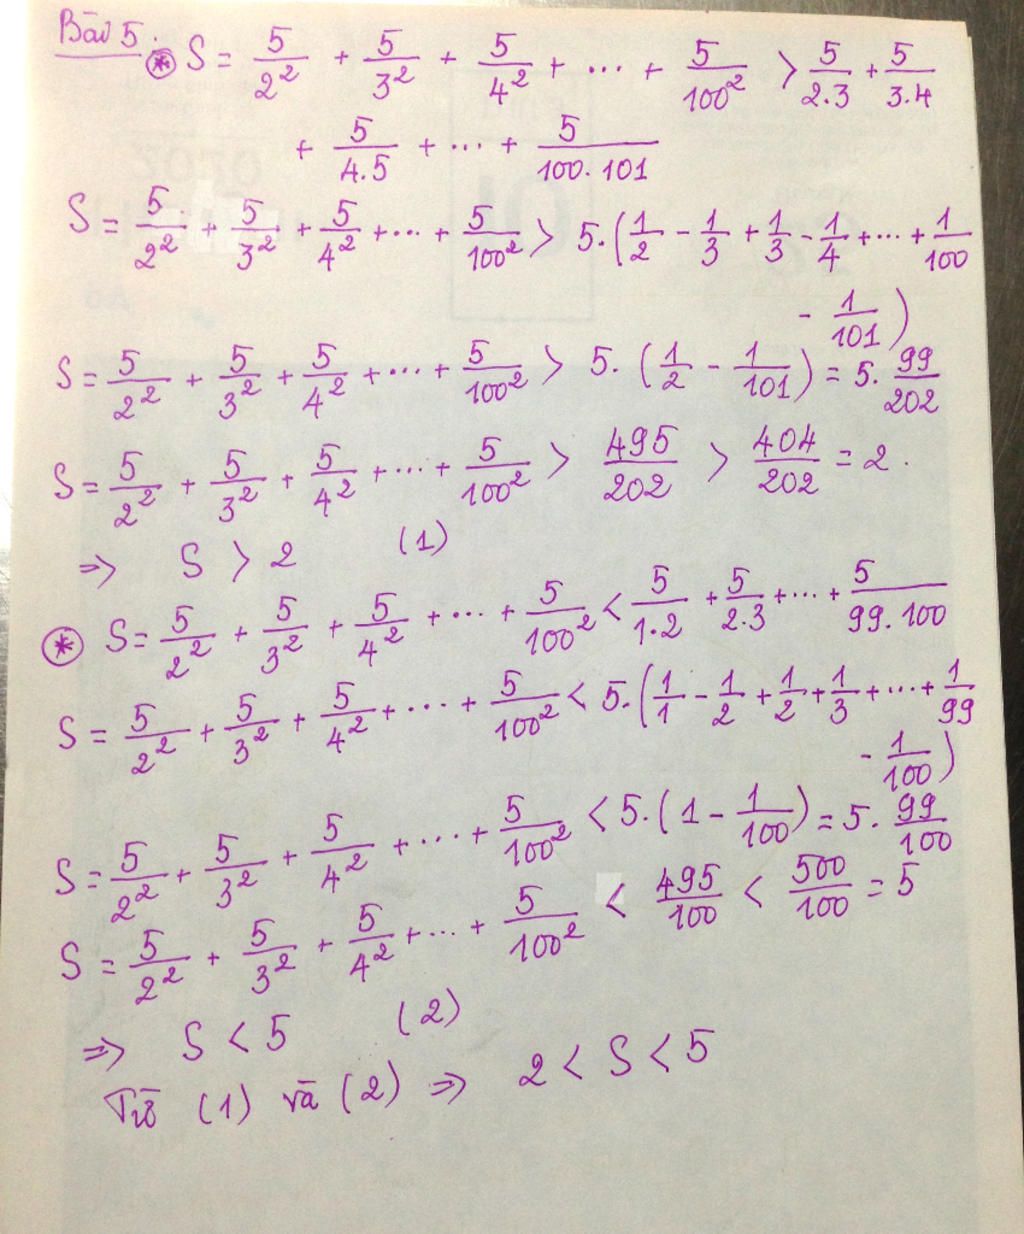 Bài 5.
⊛ S = 5/2² + 5/3² + 5/4² + ... + 5/100² > 5/2.3 + 5/3.4
+ 5/4.5 + ... + 5/100.101
S = 5/2² + 5/3² + 5/4² + ... + 5/100² > 5.(1/2 - 1/3 + 1/3 - 1/4 + ... + 1/100
- 1/101)
S = 5/2² + 5/3² + 5/4² + ... + 5/100² > 5.(1/2 - 1/101) = 5.99/202
S = 5/2² + 5/3² + 5/4² + ... + 5/100² > 495/202 > 404/202 = 2.
=> S > 2 (1)
⊛ S = 5/2² + 5/3² + 5/4² + ... + 5/100² < 5/1.2 + 5/2.3 + ... + 5/99.100
S = 5/2² + 5/3² + 5/4² + ... + 5/100² < 5.(1/1 - 1/2 + 1/2 + 1/3 + ... + 1/99
- 1/100)
S = 5/2² + 5/3² + 5/4² + ... + 5/100² < 5.(1 - 1/100) = 5.99/100
S = 5/2² + 5/3² + 5/4² + ... + 5/100² < 495/100 < 500/100 = 5
=> S < 5 (2)
Từ (1) và (2) => 2 < S < 5